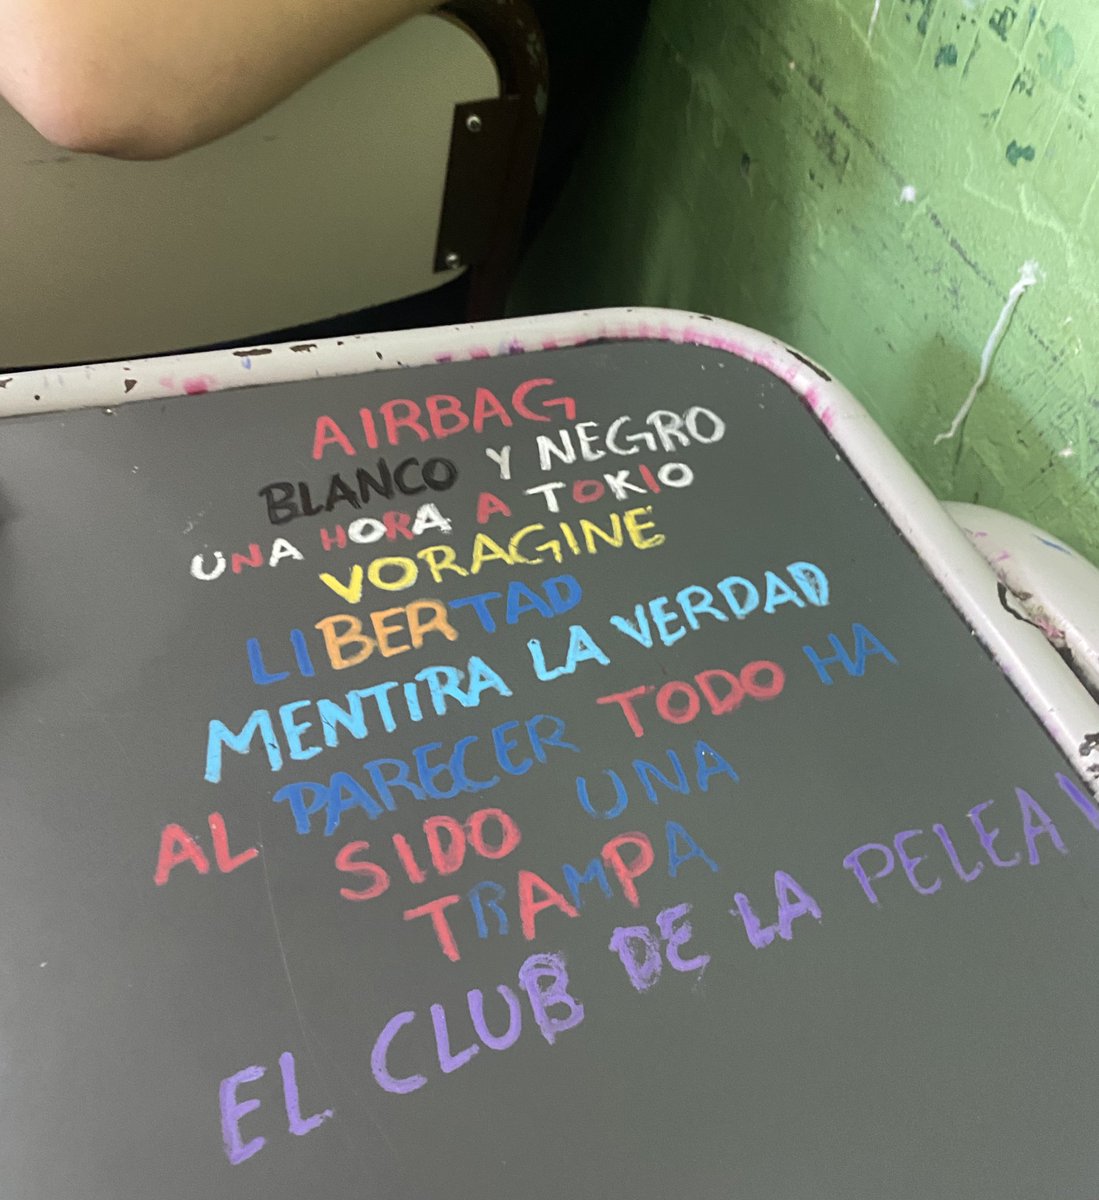 AIRBAG
BLANCO Y NEGRO
UNA HORA A TOKIO
VORAGINE
LIBERTAD
MENTIRA LA VERDAD
AL PARECER TODO HA
SIDO UNA
TRAMPA
EL CLUB DE LA PELEA I